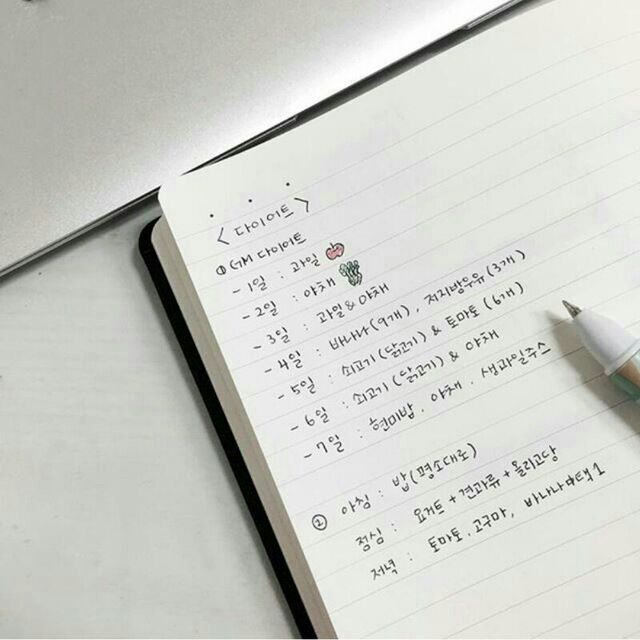 < 다이어트 >
① GM 다이어트
- 1일 : 과일
- 2일 : 야채
- 3일 : 과일 & 야채
- 4일 : 바나나 (9개), 저지방우유 (3개)
- 5일 : 쇠고기 (닭고기) & 토마토 (6개)
- 6일 : 쇠고기 (닭고기) & 야채
- 7일 : 현미밥, 야채, 생과일주스
② 아침 : 밥 (평소대로)
점심 : 요거트 + 견과류 + 올리고당
저녁 : 토마토, 고구마, 바나나 中 택 1